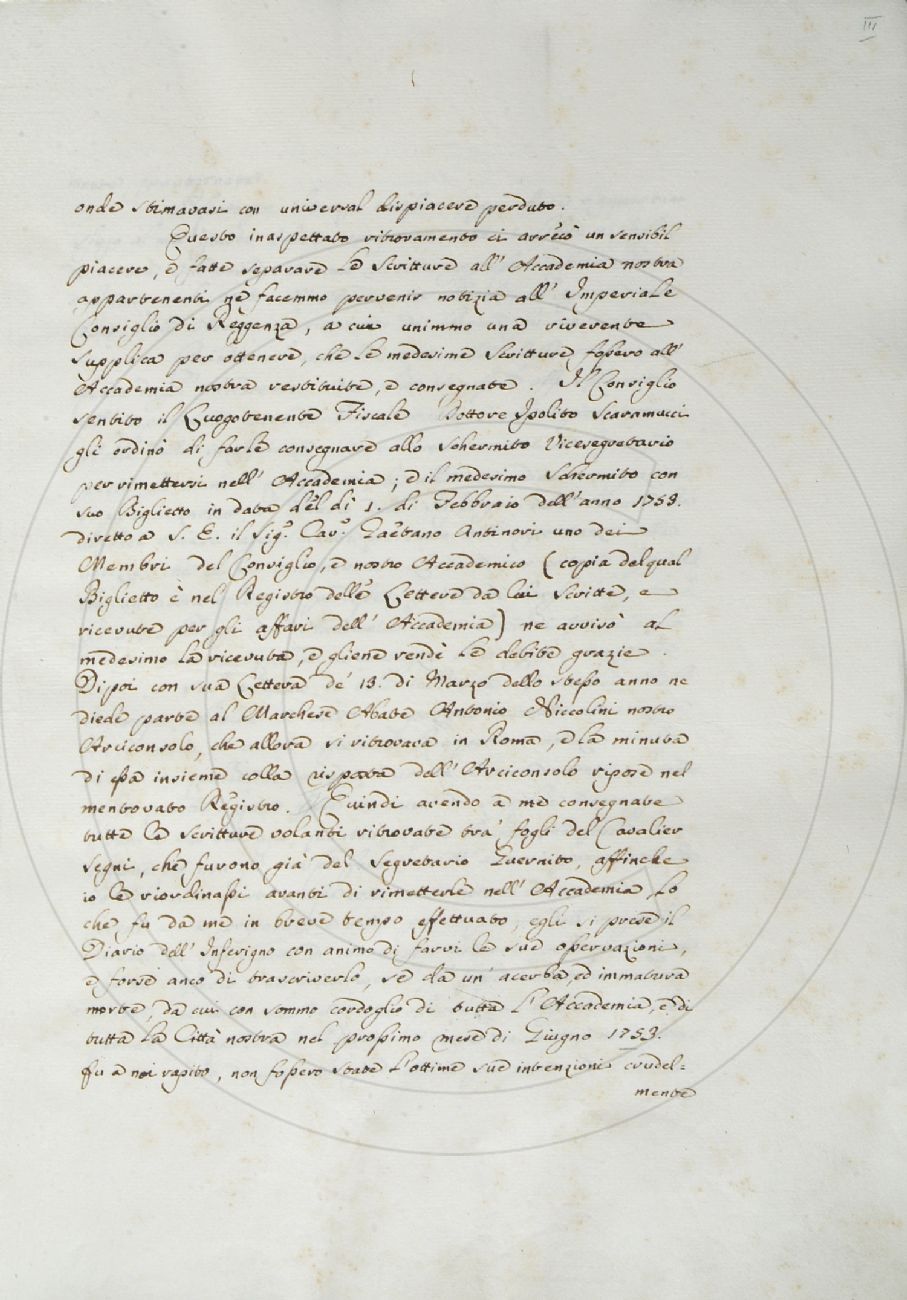 III
onde stimavasi con universal dispiacere perduto.
Questo inaspettato ritrovamento ci arrecò un sensibil
piacere, e fatte separare le Scritture all' Accademia nostra
appartenenti ne facemmo pervenir notizia all' Imperiale
Consiglio di Reggenza, a cui unimmo una riverente
supplica per ottenere, che le medesime Scritture fossero all'
Accademia nostra restituite, e consegnate. Il Consiglio
sentito il Luogotenente Fiscale Dottore Ipolito Scaramucci
gli ordinò di farle consegnare allo Schermito Vicesegretario
per rimettersi nell' Accademia; e il medesimo Schermito con
suo Biglietto in data del dì 1. di Febbraio dell' anno 1753.
diretto a S. E. il Sig.r Cav.r Gaetano Antinori uno dei
Membri del Consiglio, e nostro Accademico (copia del qual
Biglietto è nel Registro delle Lettere da lui scritte, e
ricevute per gli affari dell' Accademia) ne avvisò al
medesimo la ricevuta, e gliene rendè le debite grazie.
Dipoi con sua Lettera de' 13. di Marzo dello stesso anno ne
diede parte al Marchese Abate Antonio Niccolini nostro
Arciconsolo, che allora si ritrovava in Roma, e la minuta
di essa insieme colla risposta dell' Arciconsolo ripose nel
mentovato Registro. Quindi avendo a me consegnate
tutte le scritture volanti ritrovate tra' fogli del Cavalier
Segni, che furono già del Segretario Guernito, affinche
io le riordinassi avanti di rimetterle nell' Accademia, lo
che fu da me in breve tempo effettuato, egli si prese il
Diario dell' Inferigno con animo di farvi le sue osservazioni,
e forse anco di trascriverlo, se da un' acerba, ed immatura
morte, da cui con sommo cordoglio di tutta l' Accademia, e di
tutta la Città nostra nel prossimo mese di Giugno 1753.
fu a noi rapito, non fossero state l'ottime sue intenzioni crudel=
mente